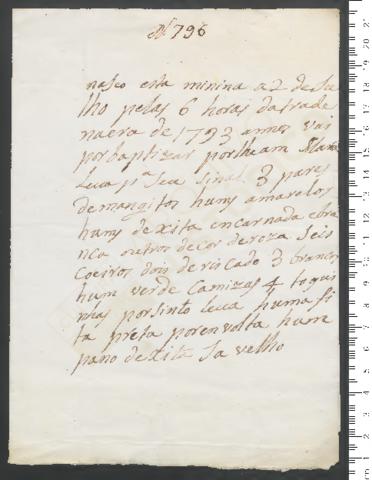 Nº 796
nasco esta minina a 2 de Ju
lho pelas 6 horas da trade
na era de 1793 annos vai
por baptizar porlheam Maria
Leva pª seu sinal 3 pares
de mangitos huns amarelos
huns de xita encarnada e bra
nca outros de cor de roza seis
Coeiros dois de riscado 3 brancos
hum verde Camizas 4 touqui
nhas por sinto leva huma fi
ta preta por envolta hum
pano de xita Ja velho